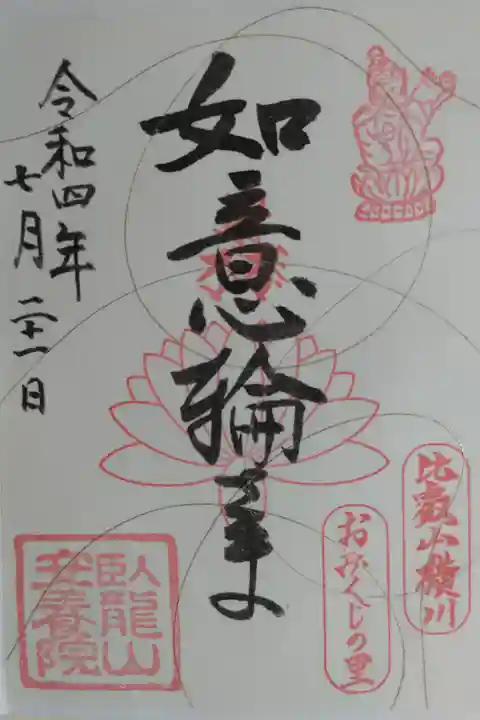 比叡山横川
おみくじの里
如意輪さま
令和四年
七月二十一日
臥龍山
安養院